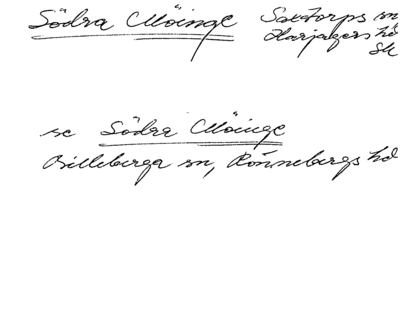 Södra Möinge Saxtorps sn
Harjagers hd
Sk
se Södra Möinge
Billeberga sn, Rönnebergs hd